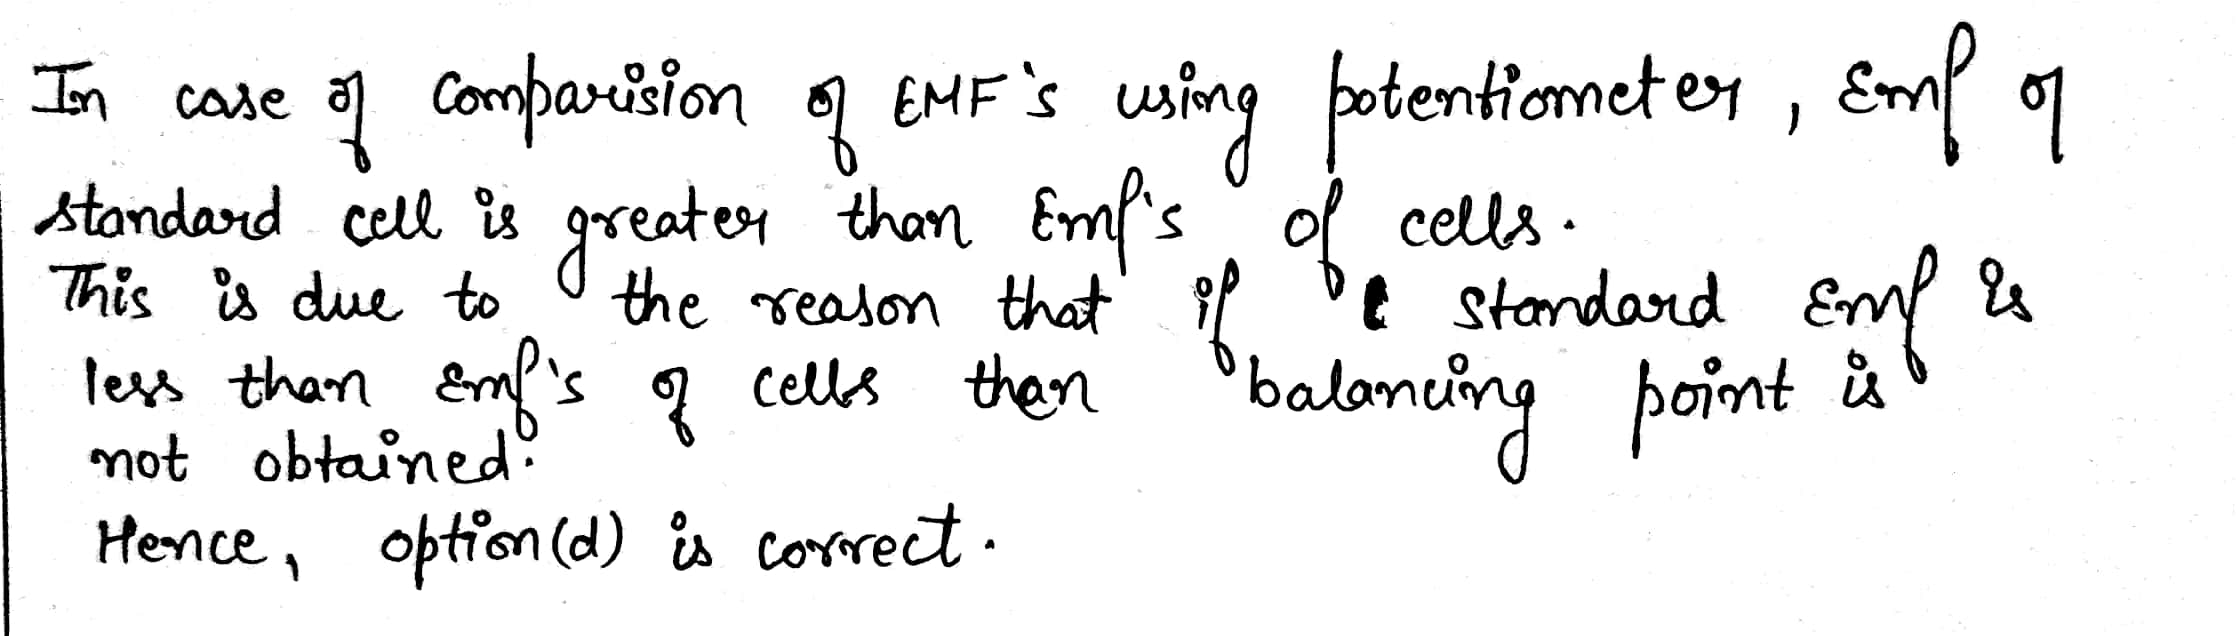 In case of comparision of EMF's using potentiometer, Emf of
standard cell is greater than Emf's of cells.
This is due to the reason that if standard Emf is
less than Emf's of cells then balancing point is
not obtained.
Hence, option (d) is correct.